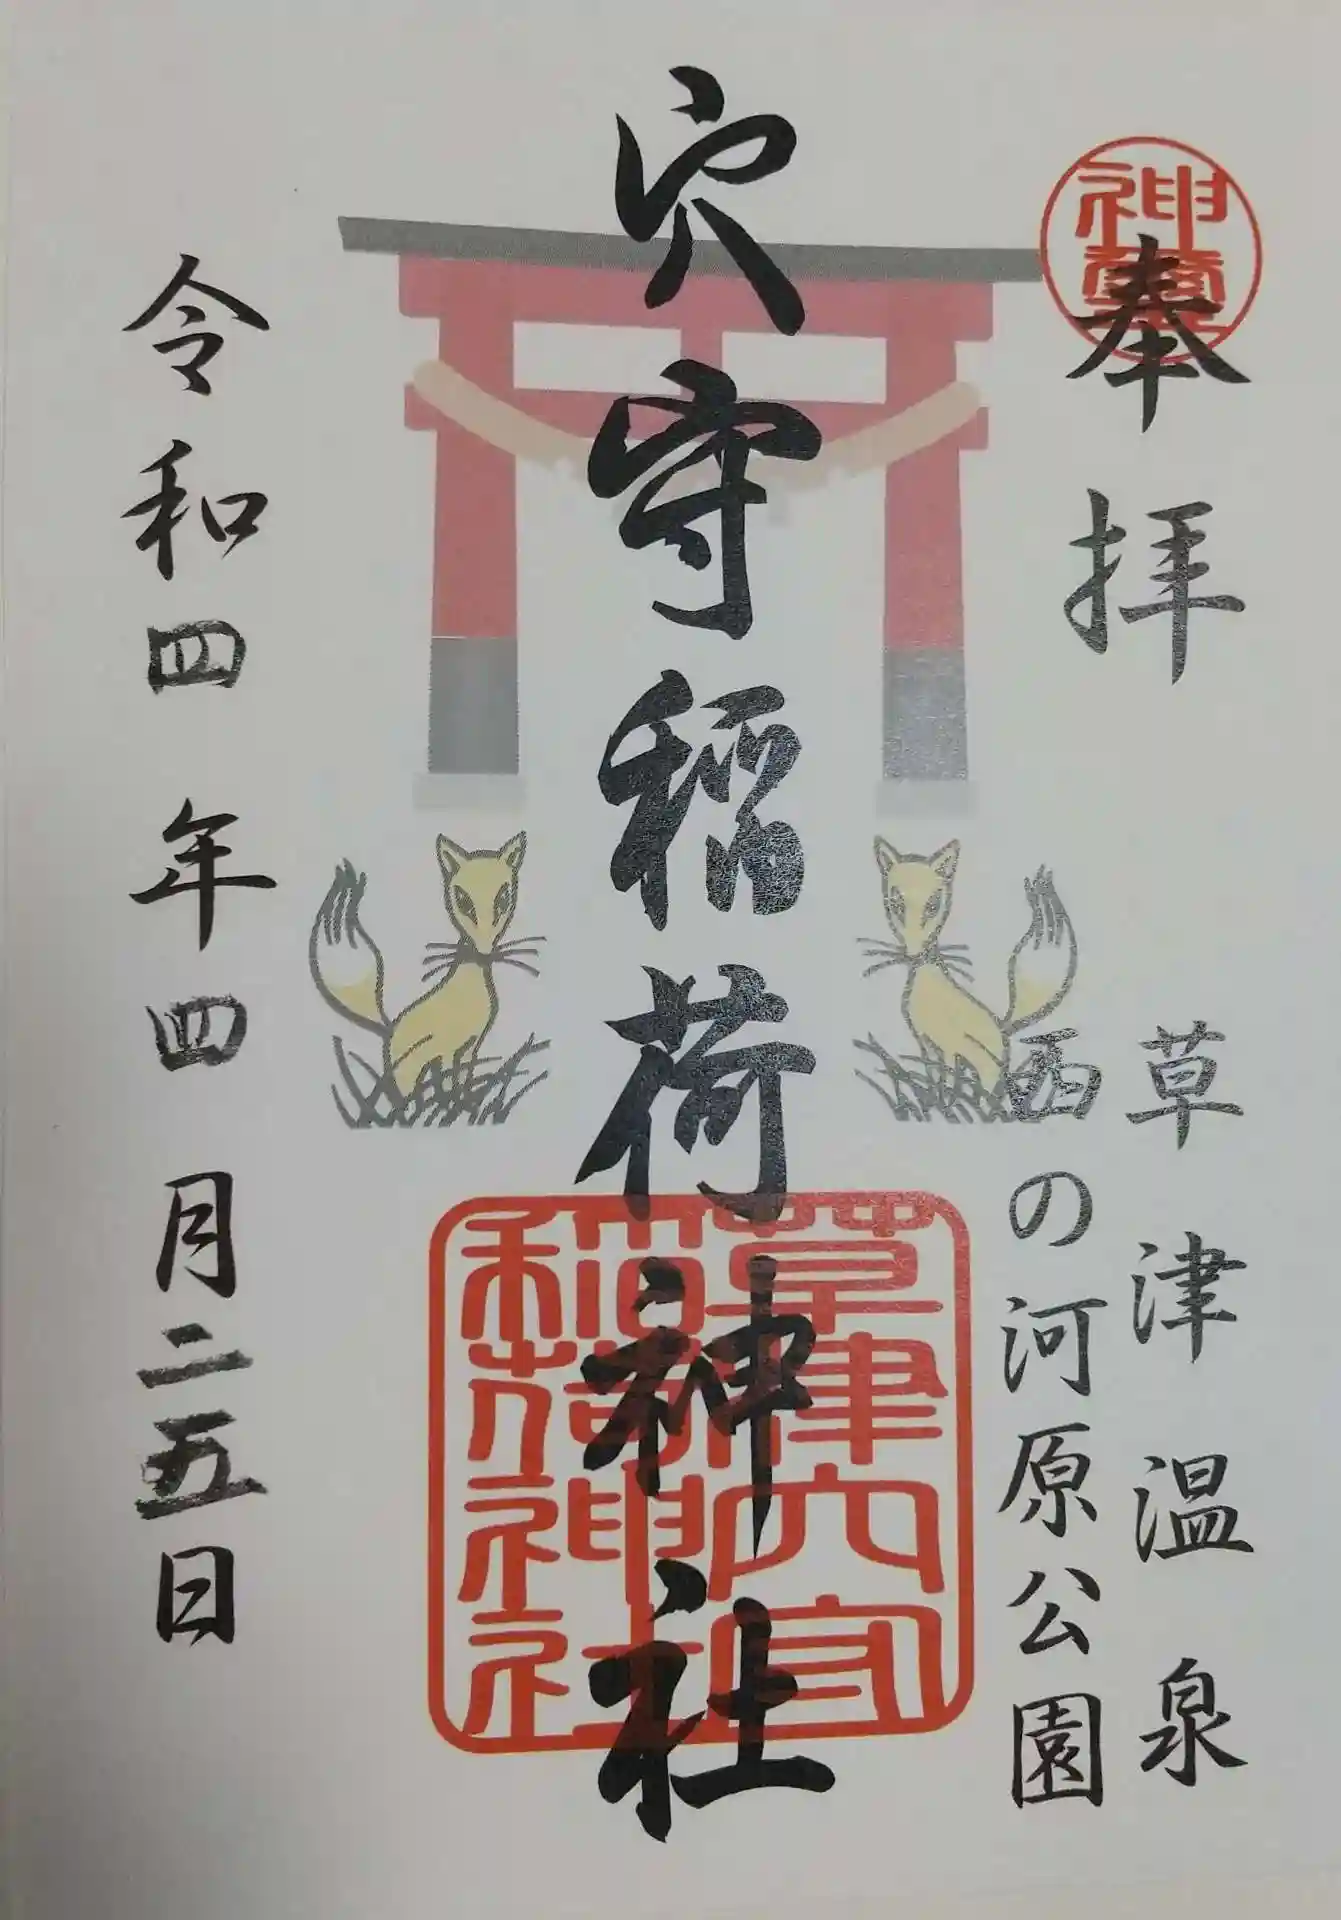 奉拝
草津温泉
西の河原公園
穴守稲荷神社
草津穴守
稲荷神社
令和四年四月二五日